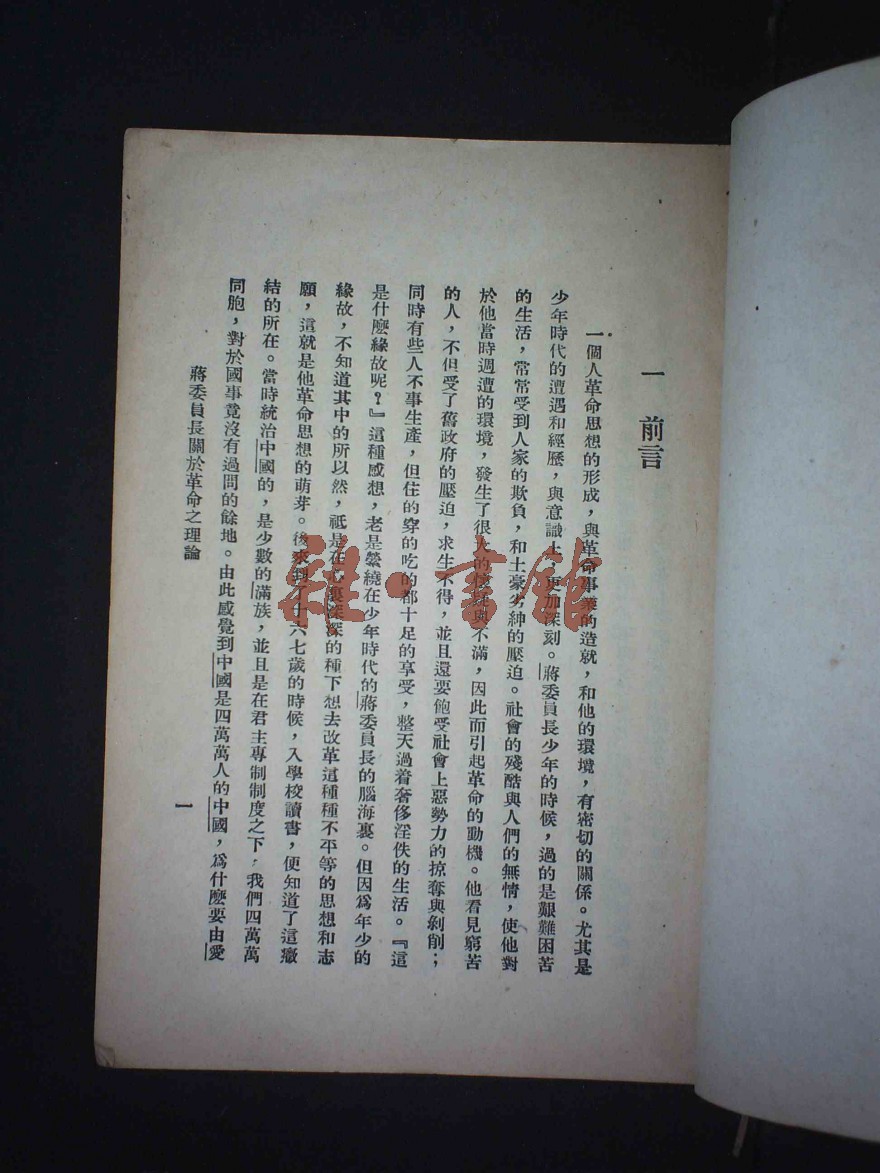 一 前言
一個人革命思想的形成，與革命事業的造就，和他的環境，有密切的關係。尤其是
少年時代的遭遇和經歷，與意識上，更加深刻。蔣委員長少年的時候，過的是艱難困苦
的生活，常常受到人家的欺負，和土豪劣紳的壓迫。社會的殘酷與人們的無情，使他對
於他當時週遭的環境，發生了很大的懷疑與不滿，因此而引起革命的動機。他看見窮苦
的人，不但受了舊政府的壓迫，求生不得，並且還要飽受社會上惡勢力的掠奪與剝削；
同時有些人不事生產，但住的穿的吃的都十足的享受，整天過着奢侈淫佚的生活。『這
是什麽緣故呢？』這種感想，老是縈繞在少年時代的蔣委員長的腦海裏。但因爲年少的
緣故，不知道其中的所以然，祇是在心裏深深的種下想去改革這種種不平等的思想和志
願，這就是他革命思想的萌芽。後來到了十六七歲的時候，入學校讀書，便知道了這癥
結的所在。當時統治中國的，是少數的滿族，並且是在君主專制制度之下，我們四萬萬
同胞，對於國事竟沒有過問的餘地。由此感覺到中國是四萬萬人的中國，爲什麽要由愛
蔣委員長關於革命之理論
一
雜·書館